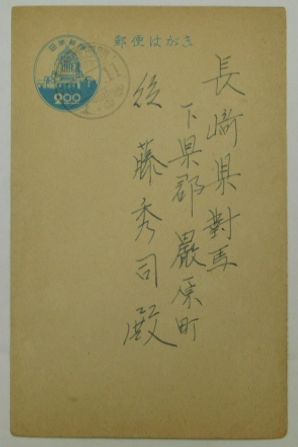 郵便はがき
日本郵便
2.00
長崎県對馬
下県郡嚴原町
後藤秀司殿